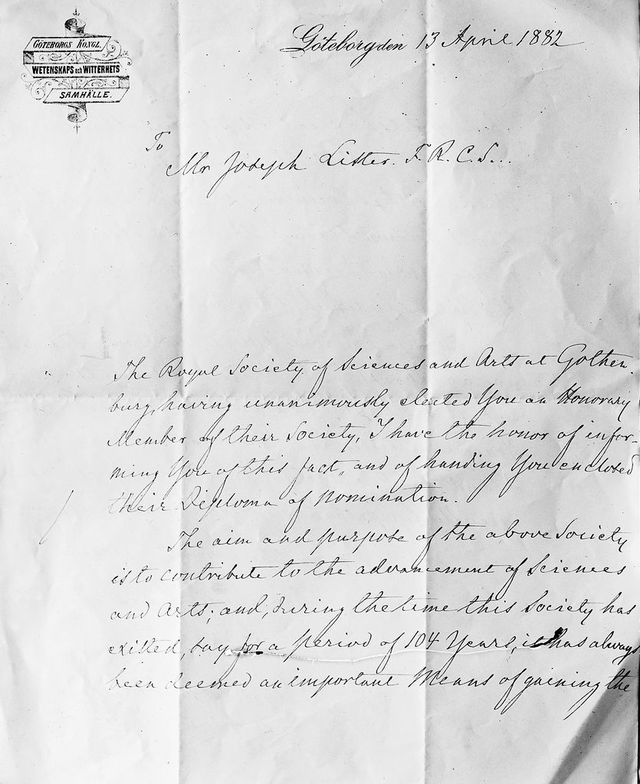 GÖTEBORGS KONGL.
WETENSKAPS OCH WITTERHETS
SAMHÄLLE.
Göteborg den 13 April 1882
To
Mr Joseph Lister. F. R. C. S...
The Royal Society of Sciences and Arts at Gothen-
burg, having unanimously elected You an Honorary
Member of their Society, I have the honor of infor-
ming You of this fact, and of handing You enclosed
their Diploma of nomination.
The aim and purpose of the above Society
is to contribute to the advancement of Sciences
and Arts; and, during the time this Society has
existed, say for a period of 104 Years, it has always
been deemed an important Means of gaining the